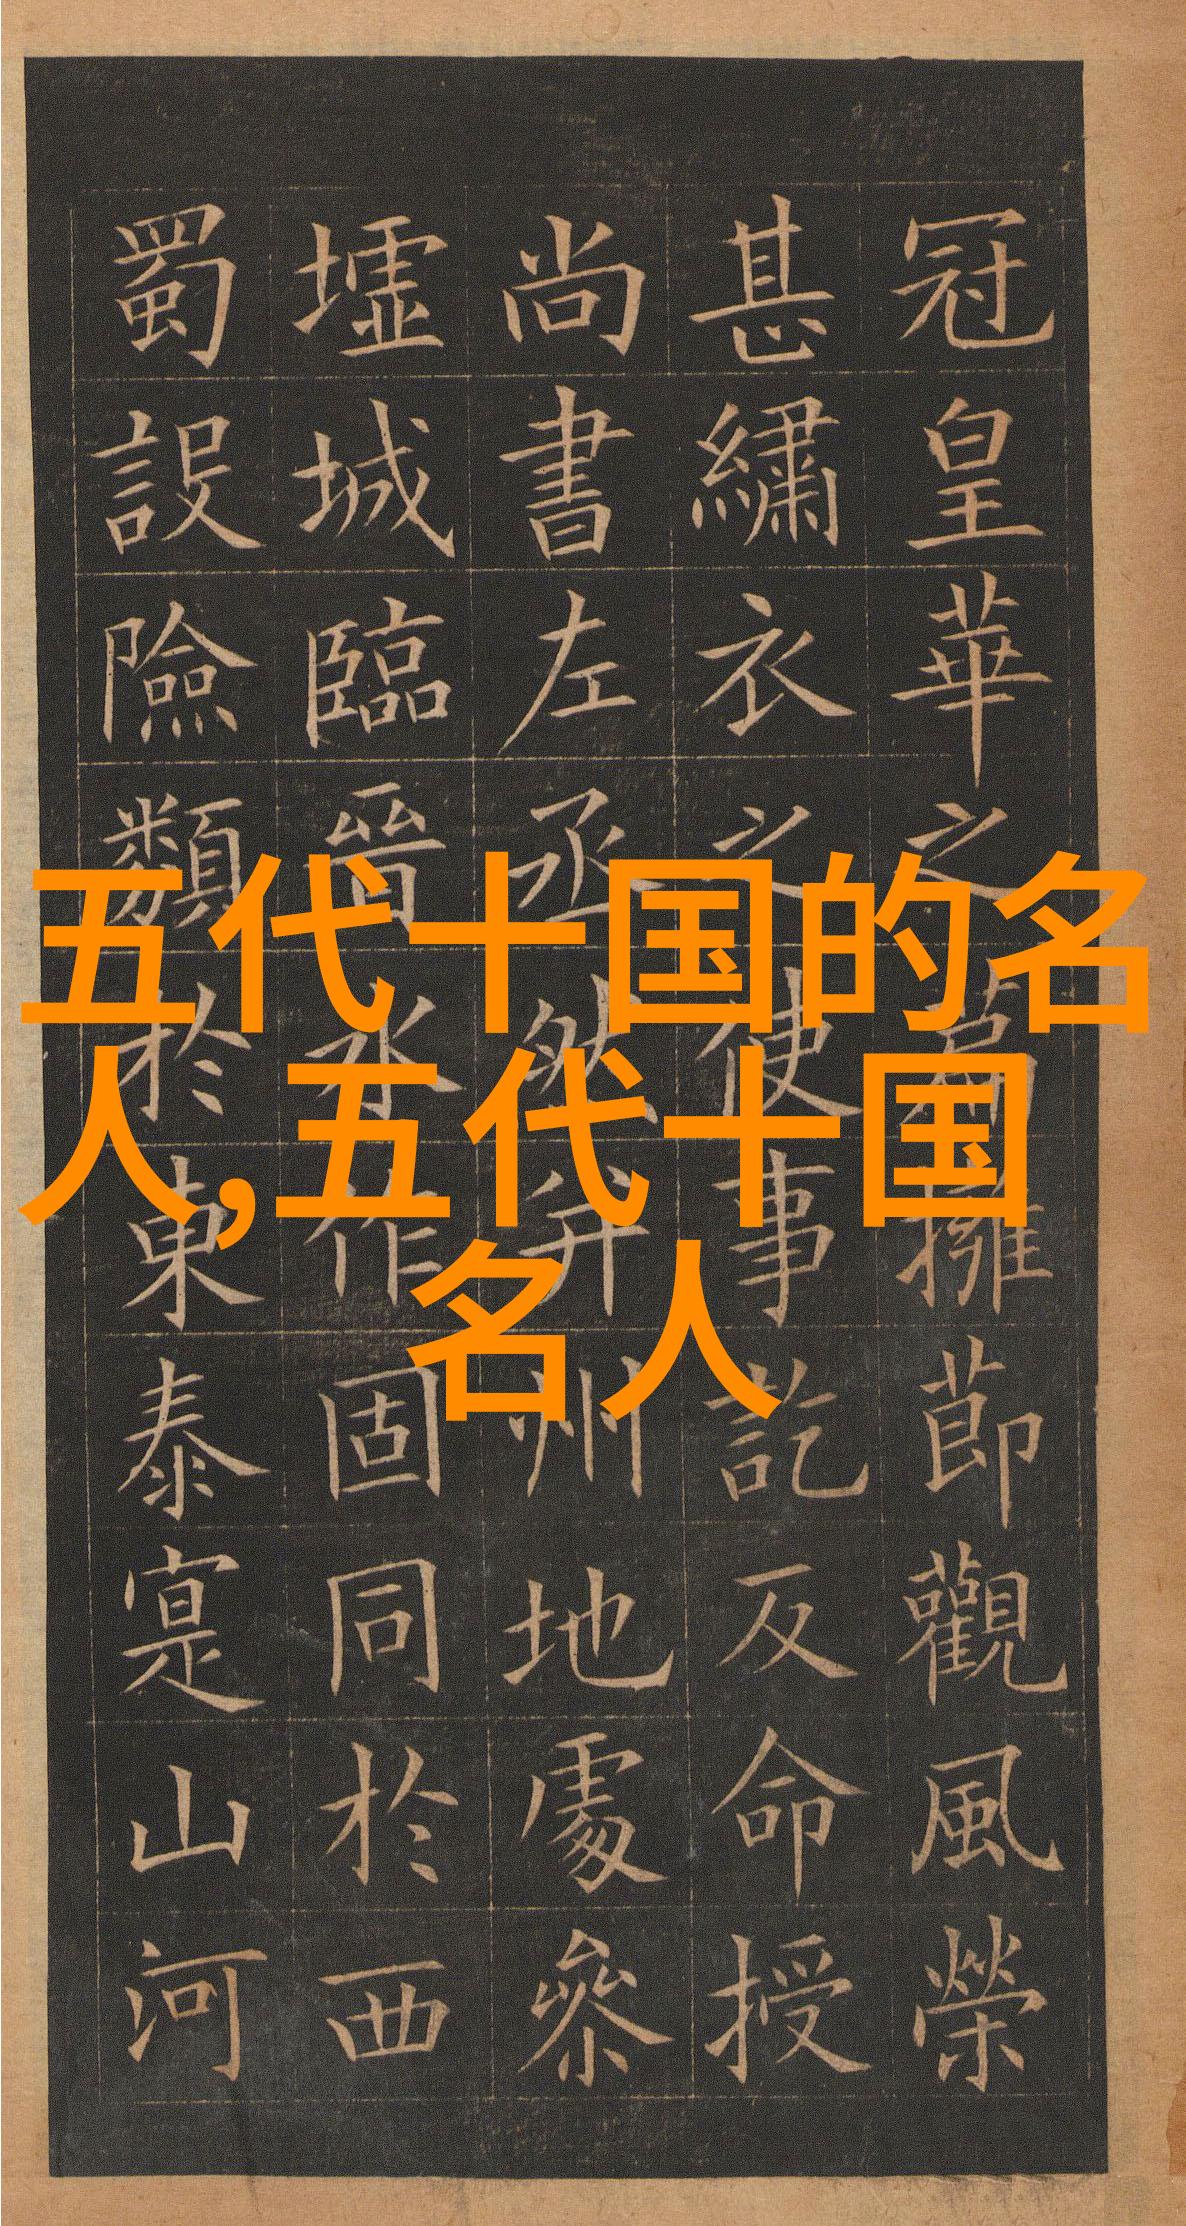 五代十国的名
人,五代十国
名人
冠皇華之擁節觀風榮
甚繡衣之使事訖反命授
尚書左丞然并州地處參
墟城臨晉水作固同於西
蜀設險類於東泰寔山河